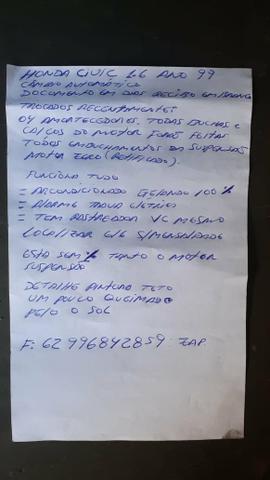 HONDA CIVIC 1.6 ANO 99
CÂMBIO AUTOMÁTICO
DOCUMENTO EM DIAS RECIBO EM BRANCO
TROCADOS RECENTIMENTES
04 AMORTECEDORES, TODAS BUCHAS E
CALÇOS DO MOTOR FORAS FEITAS
TODOS EMBUCHAMENTOS DA SUSPENSÃO
MOTOR ZERO (RETIFICADO).
FUNCIONA TUDO
= ARCONDICIONADO GELANDO 100%
= ALARME TRAVA ELÉTRICA
= TEM RASTREADOR VC MESMO
LOCALIZAR ELE S/MENSALIDADE
ESTÁ SEM % TANTO O MOTOR
SUSPENSÃO
DETALHE PINTURA TETO
UM POUCO QUEIMADO
PELO O SOL
F: 62 996842859 ZAP